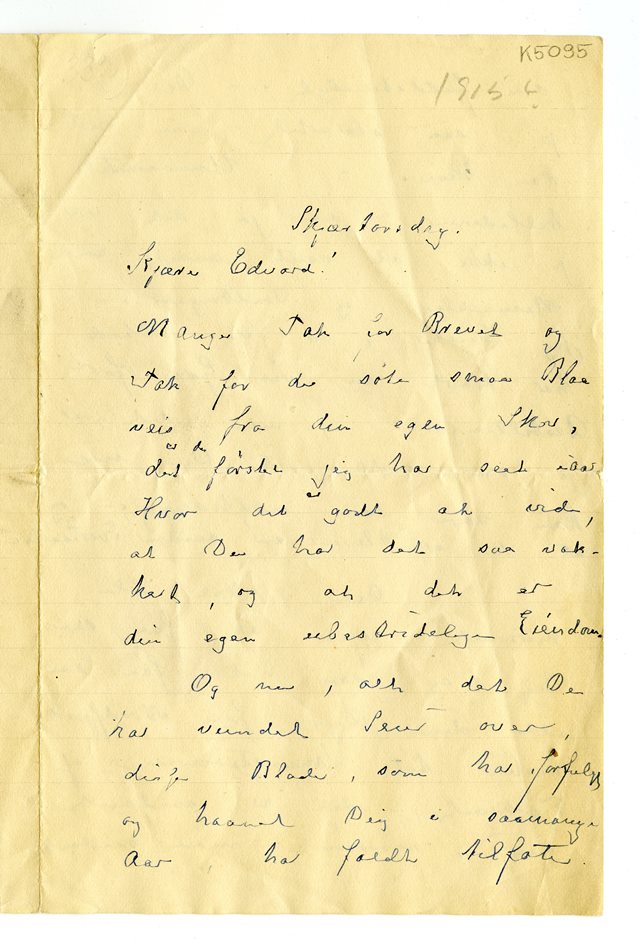 K5095
1915
Skjærtorsdag.
Kjære Edvard!
Mange Tak for Brevet og
Tak for de søte smaa Blaa
veis fra din egen Skov,
er de
det første jeg har seet iaar
Hvor det er godt at vide,
at Du har det saa vak-
kert, og at det er
din egen ubestridelige Eiendom.
Og nu, alt det Du
har vundet Seier over,
disse Blade, som har forfulgt
og haanet Dig i saamange
Aar, har faldt tilfote